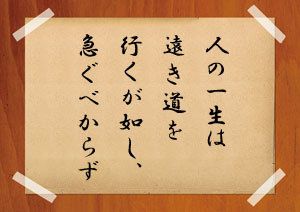 人の一生は
遠き道を
行くが如し、
急ぐべからず